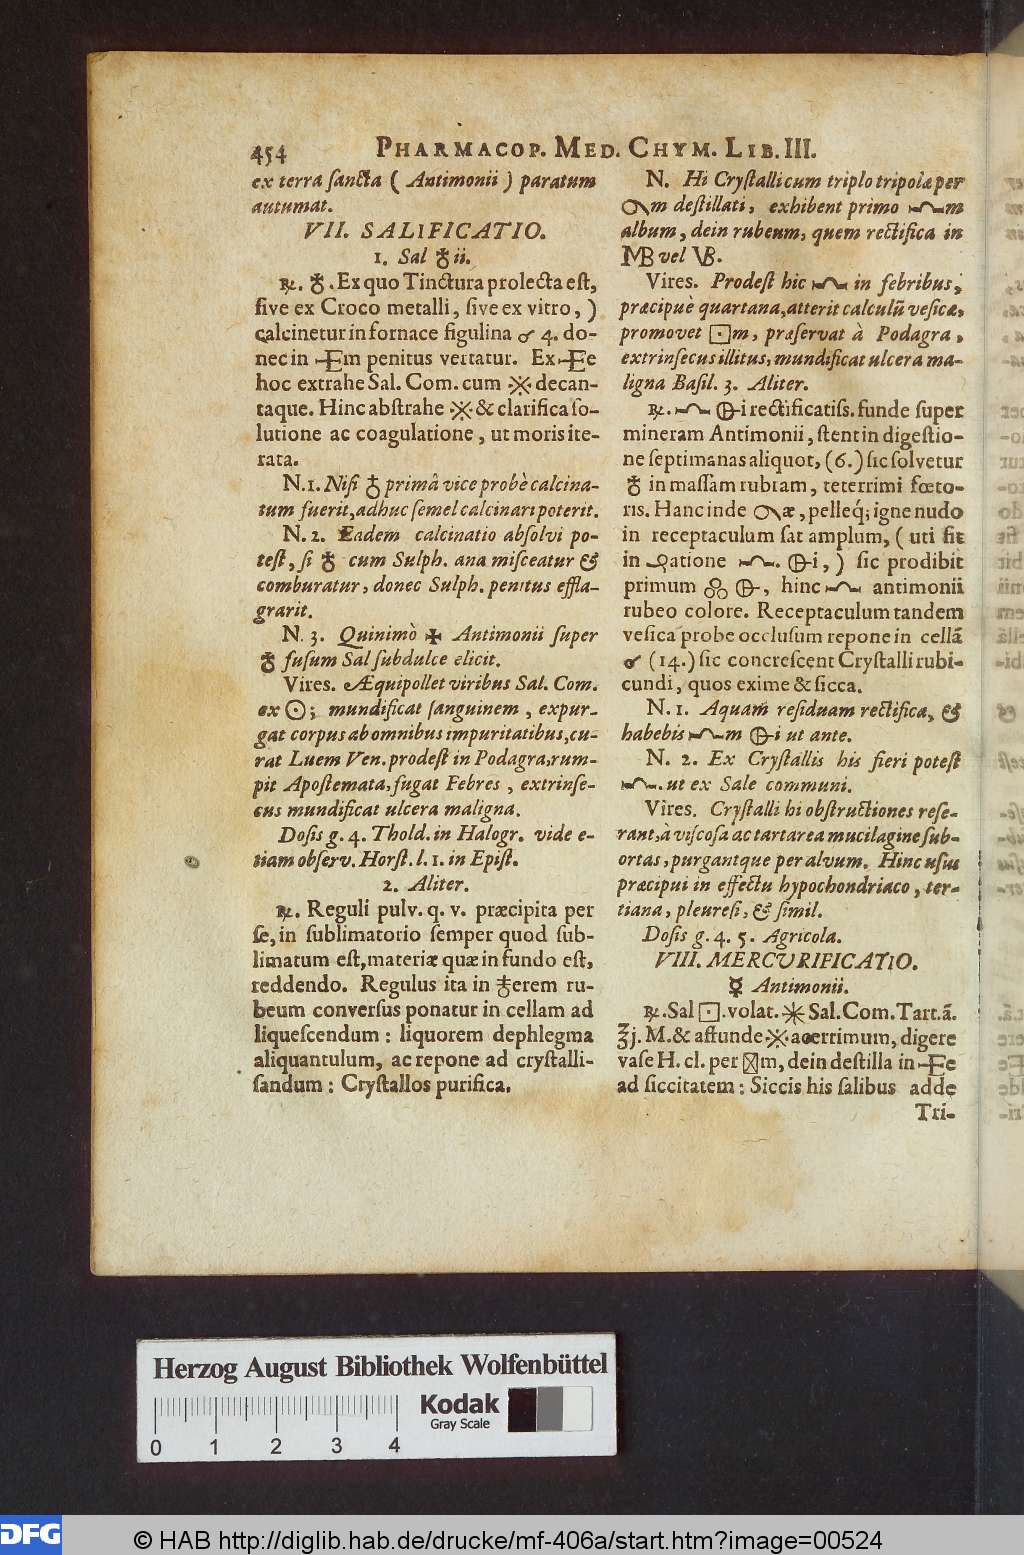 454 PHARMACOP. MED. CHYM. LIB. III.
ex terra ſancta ( Antimonii ) paratum
autumat.
VII. SALIFICATIO.
1. Sal ♁ii.
℞. ♁. Ex quo Tinctura prolecta eſt,
ſive ex Croco metalli, ſive ex vitro, )
calcinetur in fornace figulina 4. do-
nec in m penitus vertatur. Ex e
hoc extrahe Sal. Com. cum ※ decan-
taque. Hinc abſtrahe ※ & clarifica ſo-
lutione ac coagulatione, ut moris ite-
rata.
N. 1. Niſi ♁ primâ vice probè calcina-
tum fuerit, adhuc ſemel calcinari poterit.
N. 2. Eadem calcinatio abſolvi po-
teſt, ſi ♁ cum Sulph. ana miſceatur &
comburatur, donec Sulph. penitus effla-
grarit.
N. 3. Quinimò ✠ Antimonii ſuper
♁ fuſum Sal ſubdulce elicit.
Vires. Æquipollet viribus Sal. Com.
ex ☉; mundificat ſanguinem, expur-
gat corpus ab omnibus impuritatibus, cu-
rat Luem Ven. prodeſt in Podagra, rum-
pit Apoſtemata, fugat Febres, extrinſe-
cus mundificat ulcera maligna.
Doſis g. 4. Thold. in Halogr. vide e-
tiam obſerv. Horſt. l. 1. in Epiſt.
2. Aliter.
℞. Reguli pulv. q. v. præcipita per
ſe, in ſublimatorio ſemper quod ſub-
limatum eſt, materiæ quæ in fundo eſt,
reddendo. Regulus ita in erem ru-
beum converſus ponatur in cellam ad
liqueſcendum : liquorem dephlegma
aliquantulum, ac repone ad cryſtalli-
ſandum : Cryſtallos purifica.
N. Hi Cryſtalli cum triplo tripolæ per
m deſtillati, exhibent primo m
album, dein rubeum, quem rectifica in
MB vel VB.
Vires. Prodeſt hic in febribus,
præcipuè quartana, atterit calculū veſicæ,
promovet ⊡m, præſervat à Podagra,
extrinſecus illitus, mundificat ulcera ma-
ligna Baſil. 3. Aliter.
℞. i rectificatiſs. funde ſuper
mineram Antimonii, ſtent in digeſtio-
ne ſeptimanas aliquot, (6.) ſic ſolvetur
♁ in maſſam rubram, teterrimi fœto-
ris. Hanc inde æ, pelleq́; igne nudo
in receptaculum ſat amplum, ( uti fit
in atione . i, ) ſic prodibit
primum , hinc antimonii
rubeo colore. Receptaculum tandem
veſica probe occluſum repone in cellā
(14.) ſic concreſcent Cryſtalli rubi-
cundi, quos exime & ſicca.
N. 1. Aquam reſiduam rectifica, &
habebis m i ut ante.
N. 2. Ex Cryſtallis his fieri poteſt
. ut ex Sale communi.
Vires. Cryſtalli hi obſtructiones reſe-
rant, à viſcoſa ac tartarea mucilagine ſub-
ortas, purgantque per alvum. Hinc uſus
præcipui in effectu hypochondriaco, ter-
tiana, pleureſi, & ſimil.
Doſis g. 4. 5. Agricola.
VIII. MERCURIFICATIO.
☿ Antimonii.
℞. Sal ⊡. volat. ✳ Sal. Com. Tart. ā.
ʒj. M. & affunde ※ acerrimum, digere
vaſe H. cl. per m, dein deſtilla in e
ad ſiccitatem : Siccis his ſalibus adde
Tri-
Herzog August Bibliothek Wolfenbüttel
Kodak
Gray Scale
0 1 2 3 4
DFG
© HAB http://diglib.hab.de/drucke/mf-406a/start.htm?image=00524